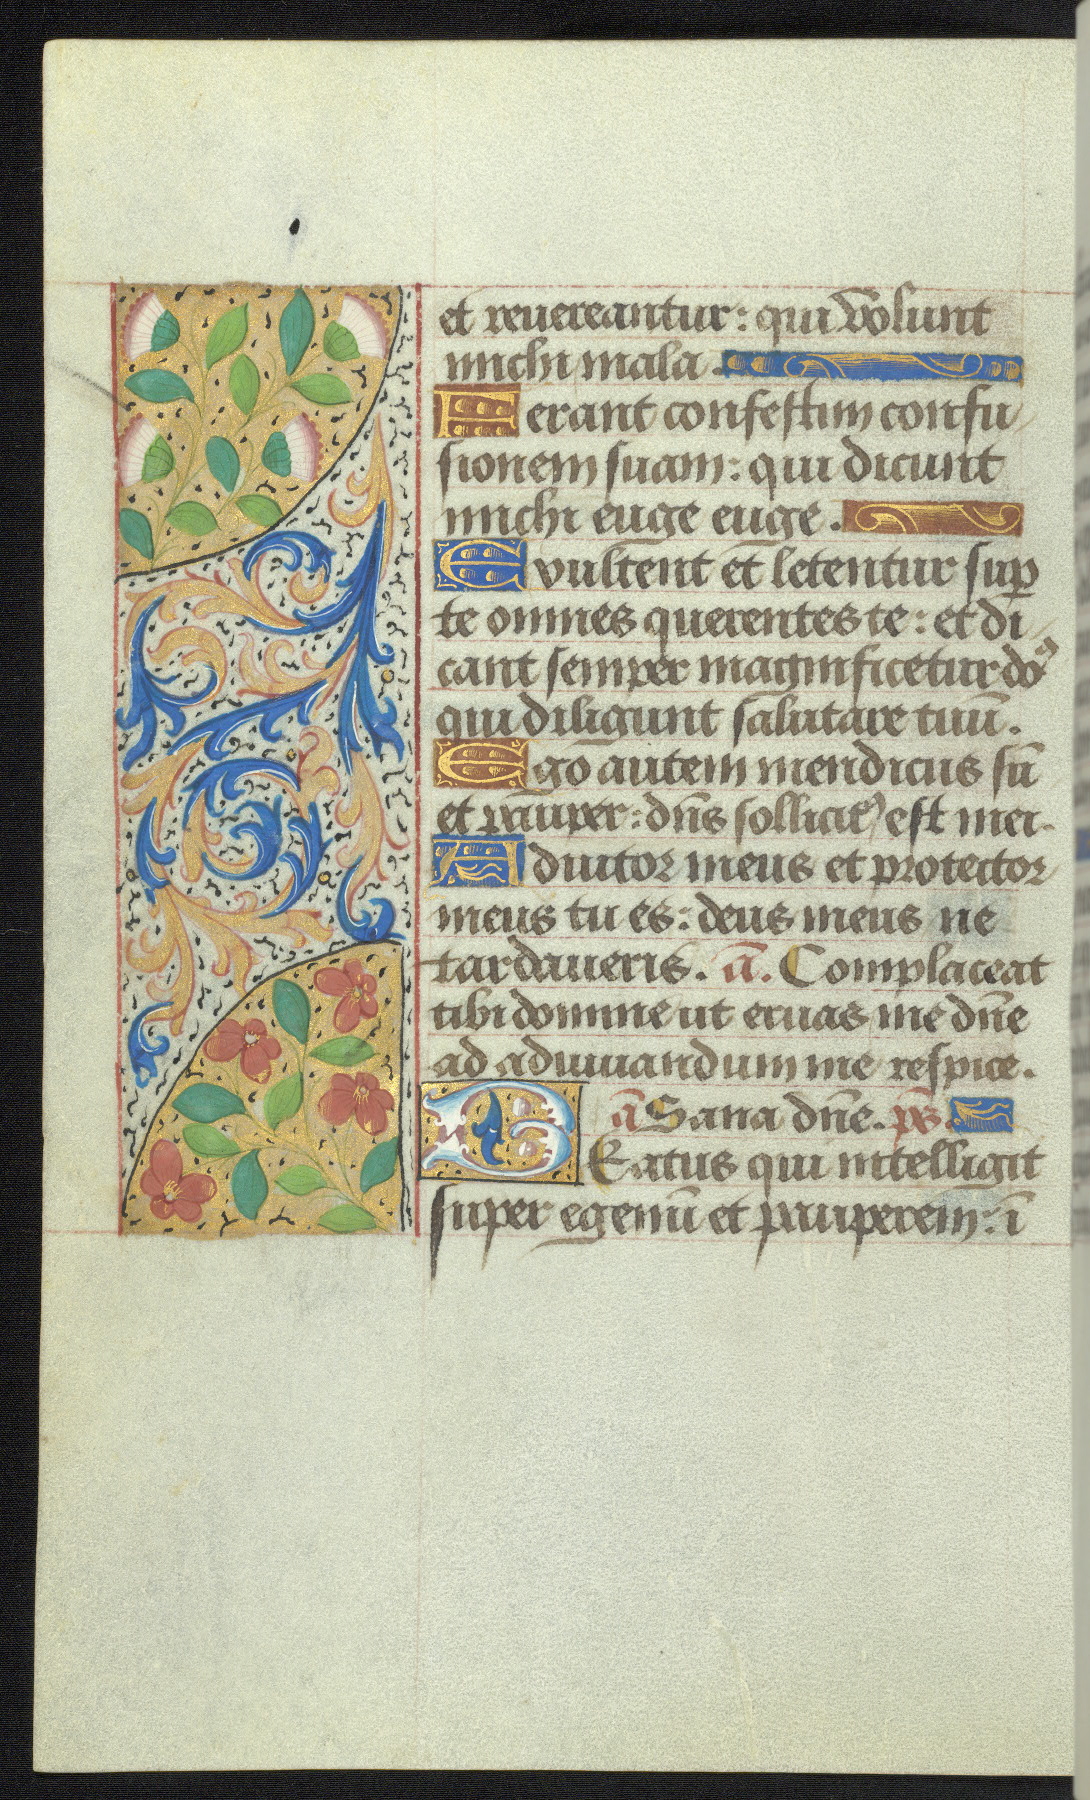 et reuereantur: qui volunt
michi mala.
Ferant confestim confu
sionem suam: qui dicunt
michi euge euge.
Exultent et letentur sup̱
te omnes querentes te: et di
cant semper magnificetur do9
qui diligunt salutare tuū.
Ego autem mendicus sū
et pauper: dn̄s sollicit9 est mei.
Adiutor meus et protector
meus tu es: deus meus ne
tardaueris. a̅. Complaceat
tibi domine ut eruas me dn̄e
ad adiuuandum me respice.
a̅ Sana dn̄e. p̄s.
BEatus qui intelligit
super egenū et pauperem: ī